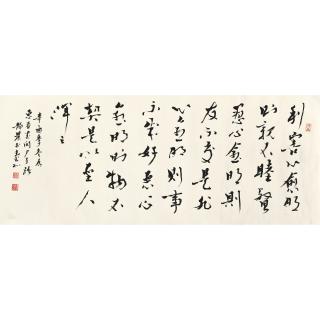 利害心愈明
則親不睦賢
愚心愈明則
友不交是非
心愈明則事
不成好惡心
愈明則物不
契是以聖人
渾之
辛酉年冬月